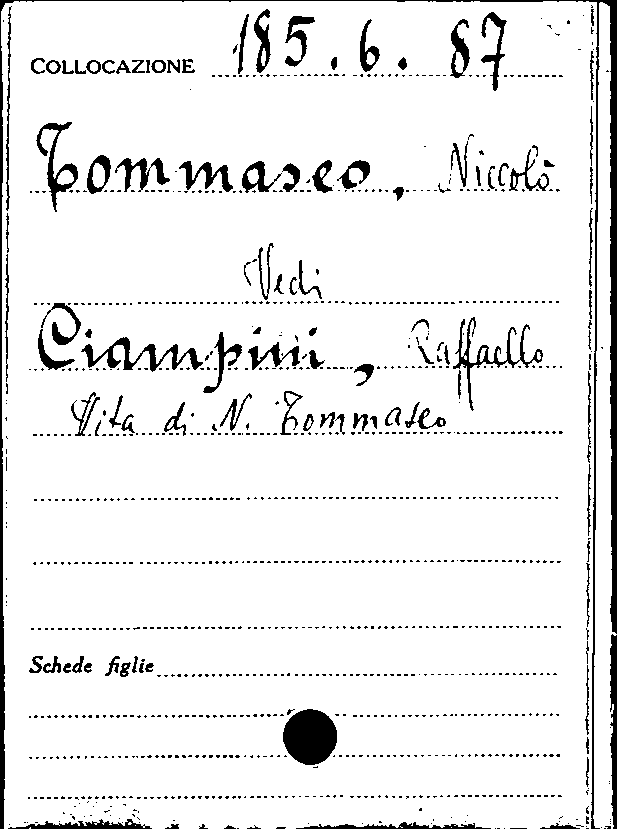 COLLOCAZIONE 185.6.87
Tommaseo, Niccolò
Vedi
Ciampini, Raffaello
Vita di N. Tommaseo
Schede figlie